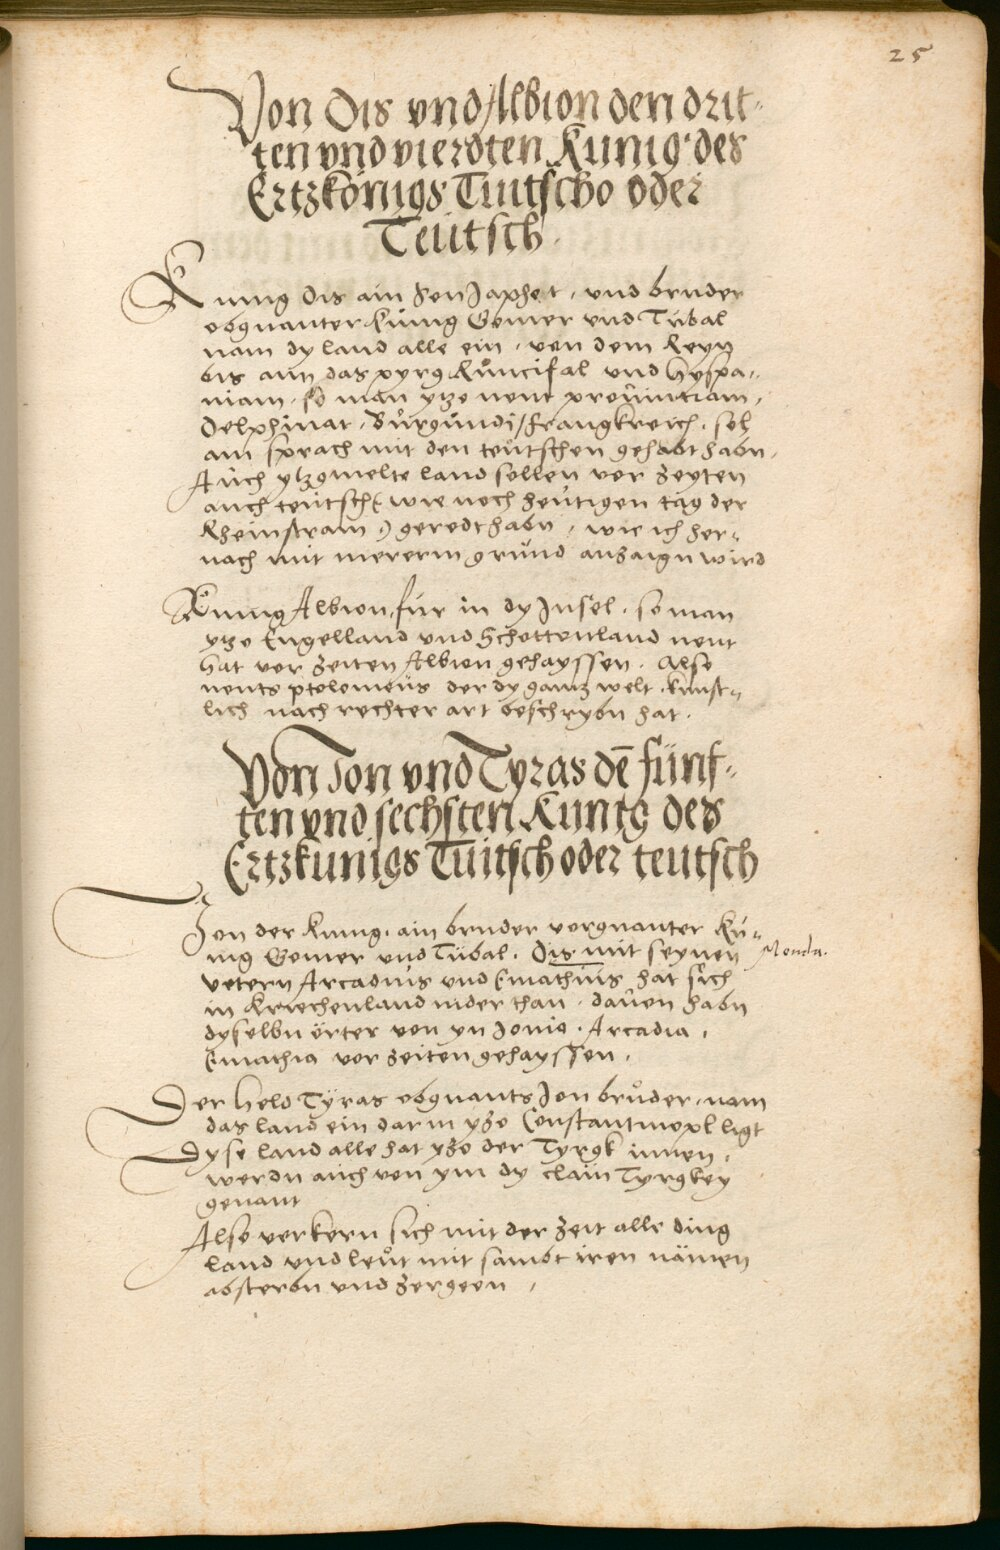 25
Von Dis vnd Albion den drit-
ten vnd vierdten Kunig des
Ertzkönigs Tuitscho oder
Teütsch.
Künig Dis ain Son Japhet, vnd bruder
obgnanter künig Gomer vnd Tubal
nam dy land alle ein, von dem Reyn
bis aun das pyrg Rŭncifal vnd Hyspa-
niam, so man ytzo nent prouintiam,
Delphinat, Burgundi, Frangkreich, sol
ain sprach mit den teutschen gehabt habn,
Auch ytzgmelte land sollen vor zeyten
auch teutsch (wie noch heutigen tag der
Rheinstram) geredt habn, wie ich her-
nach mit mererm grund anzaign wird
Künig Albion für in dy Jnsel, so man
ytzo Engelland vnd Schottenland nent
hat vor zeiten Albion gehayssen. Also
nents ptolemeus der dy gantz welt künst-
lich nach rechter art beschrybn hat.
Von Jon vnd Tyras dē fünf-
ten vnd sechsten Kunig des
Ertzkunigs Tuitsch oder teutsch
Jon der Künig, ain bruder vorgnanter Kü-
nig Gomer vnd Tübal. Dis mit seynen
vetern Arcadius vnd Emathius hat sich
in Kriechenland nider than, dauon habn
dyselbn örter von yn Jonia, Arcadia,
Emathia vor zeiten gehayssen.
Der held Tyras obgnants Jon bruder, nam
das land ein darin ytzo Constantinopl ligt
Dyse land alle hat ytzo der Tyrgk innen,
werdn auch von ym dy clain Tyrgkey
genant
Also verkern sich mit der zeit alle ding
land vnd leut mit sambt iren nämen
absterbn vnd zergeen.